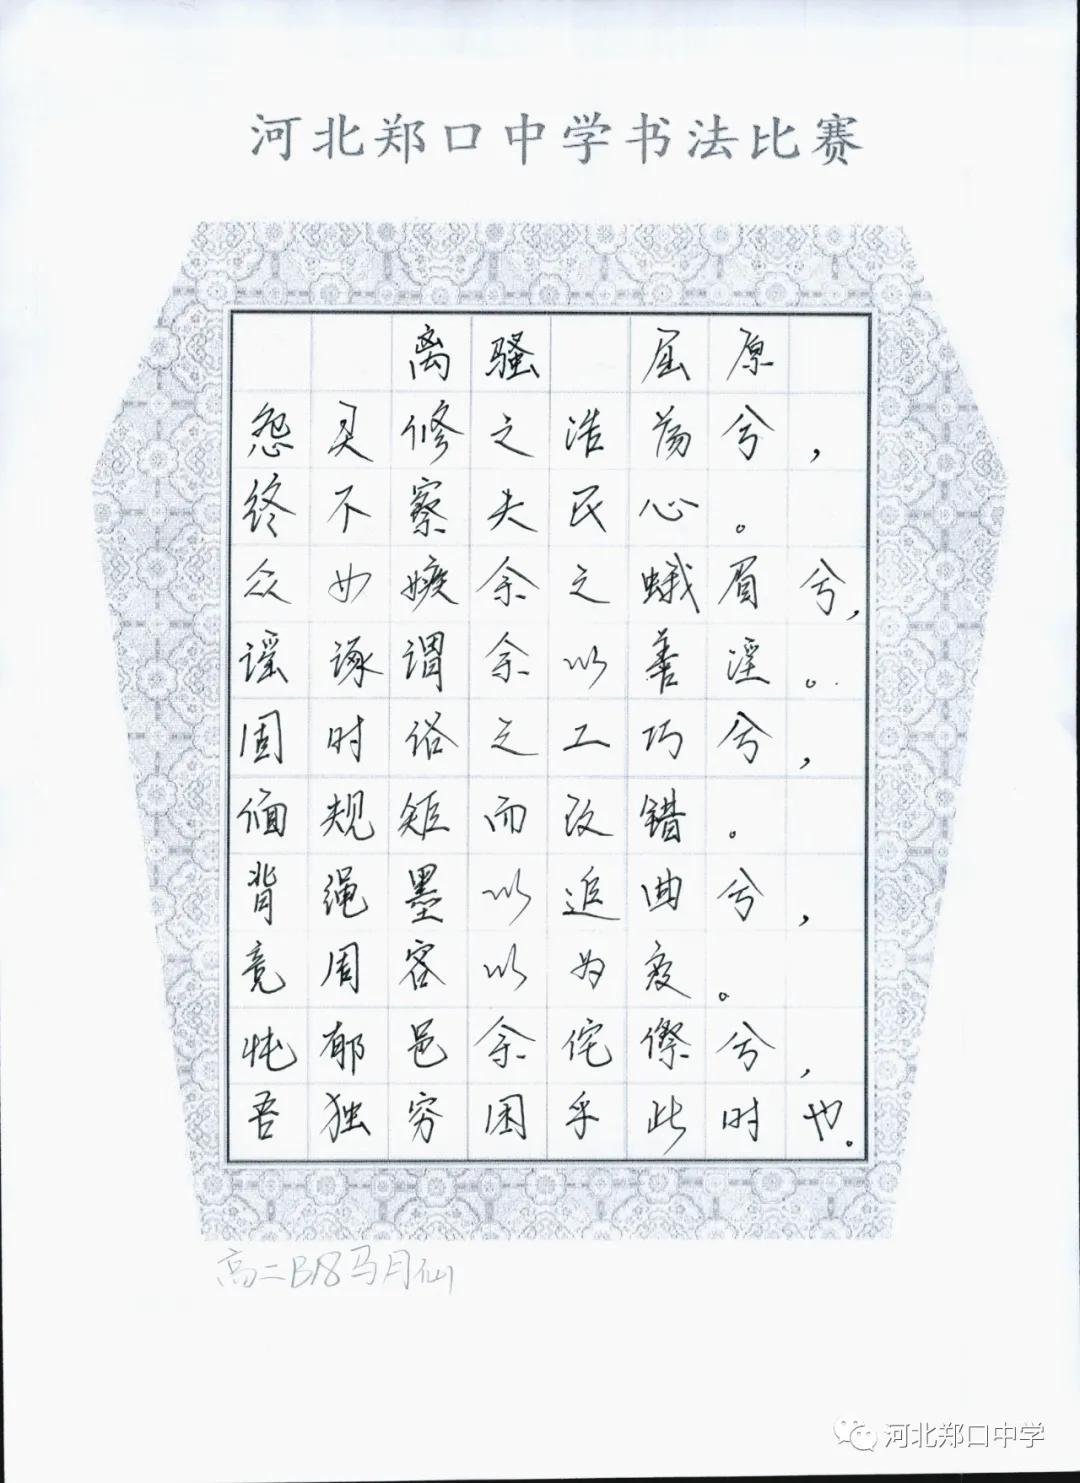 河北郑口中学书法比赛
离骚 屈原
怨灵修之浩荡兮，
终不察夫民心。
众女嫉余之蛾眉兮，
谣诼谓余以善淫。
固时俗之工巧兮，
偭规矩而改错。
背绳墨以追曲兮，
竞周容以为度。
忳郁邑余侘傺兮，
吾独穷困乎此时也。
高二B18马月仙
河北郑口中学